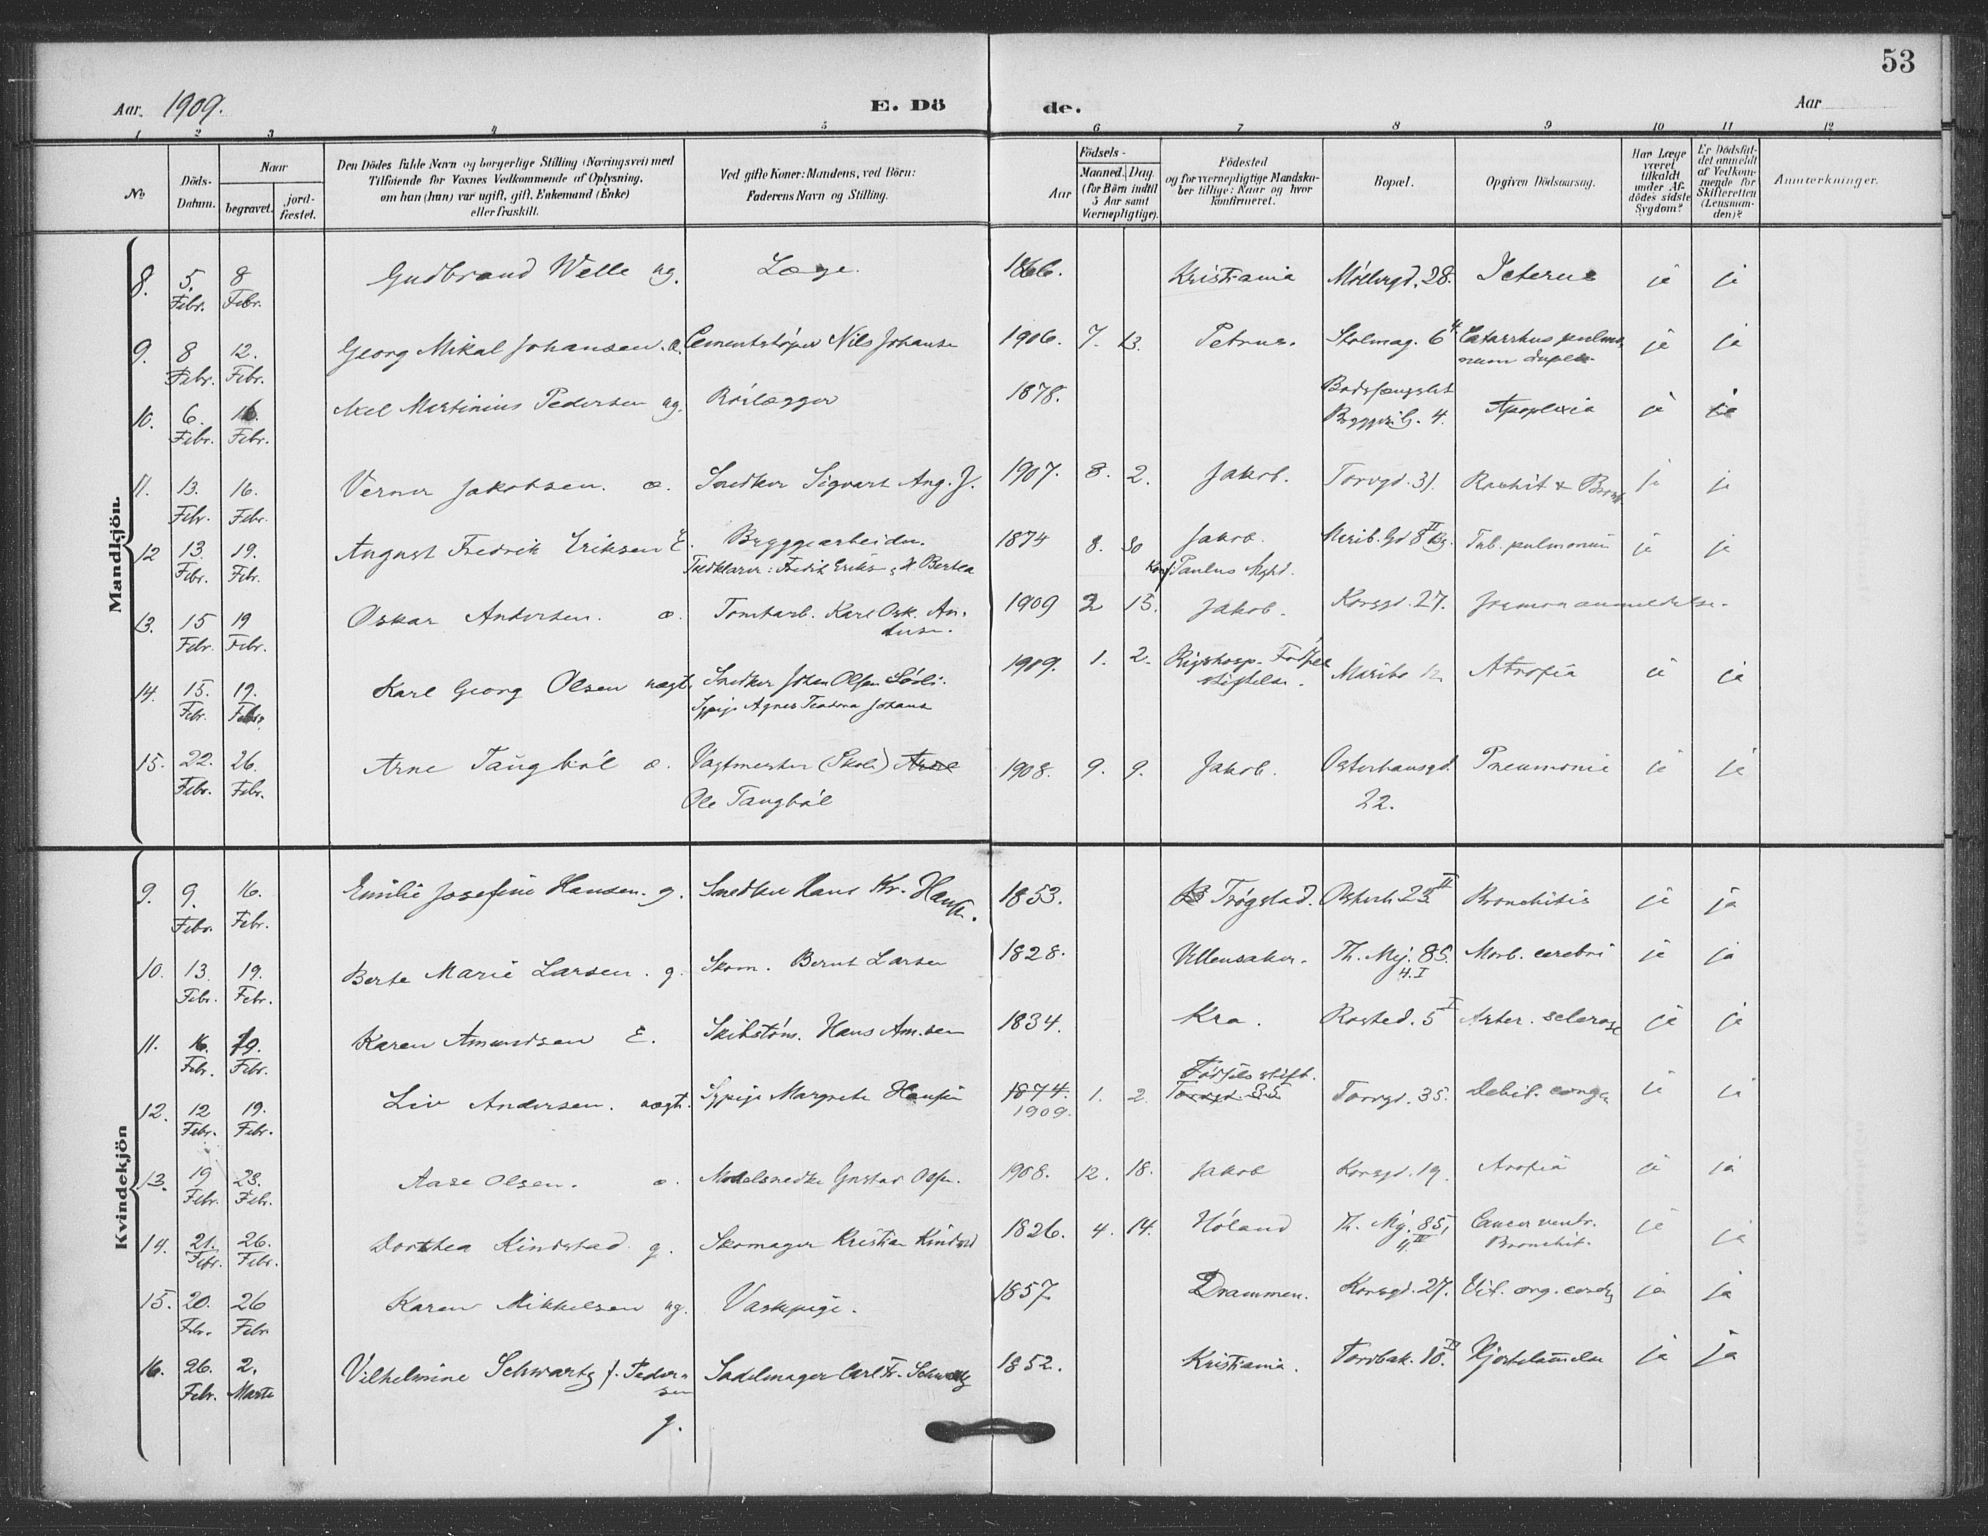 53
Aar 1909. E. Dö de. Aar
1 2 3 4 5 6 7 8 9 10 11 12
No
Döds-Datum.
Naar
begravet.
jord-fæstet.
Den Dödes fulde Navn og borgerlige Stilling (Næringsvei) med
Tilföiende for Voxnes Vedkommende af Oplysning,
om han (hun) var ugift, gift, Enkemand (Enke)
eller fraskilt.
Ved gifte Koner: Mandens, ved Börn:
Faderens Navn og Stilling.
Födsels-
Aar
Maaned. Dag
(for Börn indtil
5 Aar samt
Værnepligtige).
Födested
og for værnepligtige Mandska-
ber tillige: Naar og hvor
konfirmeret.
Bopæl.
Opgiven Dödsaarsag.
Har Læge
været
tilkaldt
under Af-
dödes sidste
Sygdom?
Er Dödsfal-
det anmeldt
af Vedkom-
mende for
Skifteretten
(Lensman-
den)?
Anmærkninger.
Mandkjön.
8. 5. Febr. 8 Febr. Gudbrand Welle ug. Læge. 1866. Kristiania Möllergd. 28. Icterus ja ja
9. 8 Febr. 12. Febr. Georg Mikal Johansen. æ. Cementstøper Nils Johanse 1906. 7. 13. Petrus. Stolmag. 6 Catarrhus pulmo-
num duplex ja ja
10. 6. Febr. 16. Febr. Axel Martinius Pedersen ug. Rörlægger 1878. Bodsfængslet
Byggeri G. 4. Apoplexia ja ja
11. 13. Febr. 16. Febr. Verner Jakobsen. æ. Snedker Sigvart Aug. J. 1907. 8. 2. Jakob. Torvgd. 31. Rachit & Bronk ja ja
12 13. Febr. 19. Febr. August Fredrik Eriksen E. Bryggearbeider.
Fredrik Eriks & Bertea 1874 8. 30 Jakob.
Konf Paulus Menhd. Marib. Gd 8 II Tub. pulmonum ja ja
13. 15 Febr. 19 Febr. Oskar Andersen. æ. Tomtarb. Karl Osk. An-
dersen. 1909 2 13. Jakob. Korsgd. 27. Jormoranmeldelse.
14. 15. Febr. 19. Febr. Karl Georg Olsen uægt. Snedker Johan Olsen Söoli.
Sypige Agnes Teodora Johans 1909. 1. 2. Rigshosp. Födsels
stiftelse. Maribo 12 Atrofia ja ja
15. 22. Febr. 26. Febr. Arne Tangböl æ. Vagtmester (Skole) Arne
Ole Tangböl 1908. 9. 9. Jakob. Osterhausgd.
22. Pneumonia ja ja
Kvindekjön
9. 9. Febr. 16. Febr. Emilie Josefine Hansen. g. Snedker Hans Kr. Hansen. 1853. Trøgstad. Osterh. 23. II Bronchitis ja ja
10. 13. Febr. 19. Febr. Berte Marie Larsen. g. Skom. Bernt Larsen 1828. Ullensaker. Th. Mej. 85.
4. I Morb. cerebri ja ja
11. 16. Febr. 19. Febr. Karen Amundsen E. Skibstöm. Hans Am.sen 1834. Kra. Rosted. 5 I Arter. sclerose ja ja
12. 12 Febr. 19. Febr. Liv Andersen. uægt. Sypige Margrete Hansen 1874.
1909. 1. 2. Födsels stift.
Torvgd. 35 Torvgd. 35. Debil. conga ja ja
13. 19 Febr. 23. Febr. Aase Olsen. æ. Modelsnedker Gustav Olsen. 1908. 12. 18. Jakob Korsgd. 19. Atrofia ja ja
14. 21. Febr. 26. Febr. Dorthea Kindstad. g. Skomager Kristian Kindstad 1826. 4. 14. Höland Th. Mej. 85,
4. II Cancer ventr.
Bronchit. ja ja
15. 20. Febr. 26 Febr Karen Mikkelsen ug. Vaskepige. 1857. Drammen. Korsgd. 27. Vit. org. cordis ja ja
16. 26. Febr. 2. Marts Vilhelmine Schwartz f. Peder-
sen
g. Sadelmager Carl Fr. Schwartz 1852. Kristiania. Tordbak. 10. Hjertelammelse ja ja